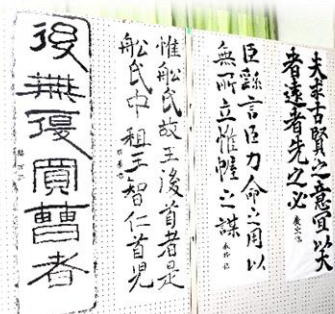 夫求古賢之意宜以大
者遠者先之必
臣繇言臣力命之用以
無所立惟帷之謀
惟舩氏故王後首者是
舩氏中祖王智仁首児
後無復買曹者